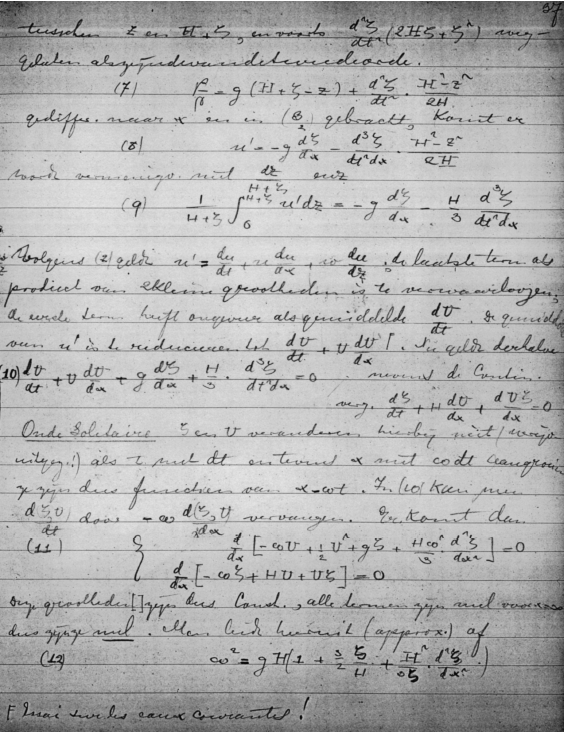 37
tusschen z en H+ζ, en voorts d²ζ/dt² (2Hζ+ζ²) weg-
gelaten als zijnde van de tweede orde.
(7) p/ρ = g (H+ζ−z) + d²ζ/dt² · (H²−z²)/2H
gediffer. naar x en in (3) gebracht, komt er
(8) u' = −g dζ/dx − d³ζ/dt²dx · (H²−z²)/2H
wordt vermenigv. met dz/(H+ζ) enz
(9) 1/(H+ζ) ∫₀^(H+ζ) u'dz = −g dζ/dx − H/3 d³ζ/dt²dx
Volgens (2) geldt u' = du/dt + u du/dx + w du/dz, de laatste term als
product van kleine grootheden is te verwaarloozen,
de eerste term heeft ongeveer als gemiddelde dU/dt De gemidd
van u' is te reduceeren tot dU/dt + U dU/dx. Nu geldt derhalve
(10) dU/dt + U dU/dx + g dζ/dx + H/3 · d³ζ/dt²dx = 0 nevens de Contin.
verg. dζ/dt + H dU/dx + dUζ/dx = 0
Onde Solitaire ζ en U veranderen hierbij niet
als t met dt en tevens x met ωdt
ze zijn dus functien van x−ωt. In (10) kan men
d(ζ,U)/dt door −ω d(ζ,U)/dx vervangen. Er komt dan
(11) { d/dx [−ωU + ½U² + gζ + Hω²/3 d²ζ/dx²] = 0
d/dx [−ωζ + HU + Uζ] = 0
Deze grootheden [] zijn dus Const., alle termen zijn nul
dus zijze nul. Men leidt hieruit (approx.) af
(12) ω² = gH(1 + 3/2 ζ/H + H²/3ζ · d²ζ/dx²)
Essai sur les eaux courantes!